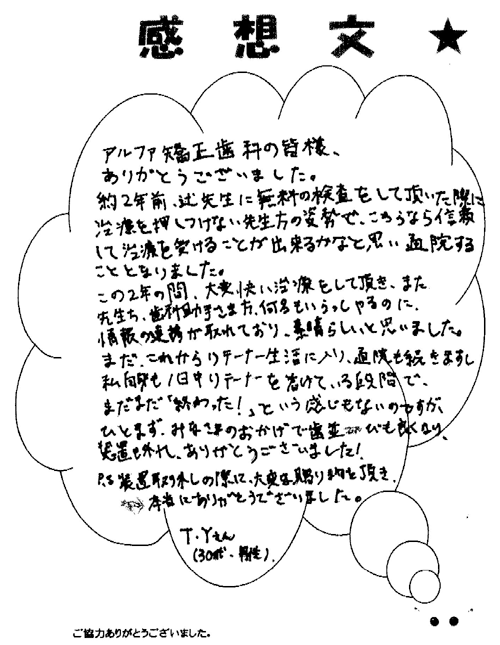 感想文★
アルファ矯正歯科の皆様、
ありがとうございました。
約2年前、辻先生に無料の検査をして頂いた際に
治療を押しつけない先生方の姿勢で、こちらなら信頼
して治療を受けることが出来るかなと思い通院する
こととなりました。
この2年の間、大変快い治療をして頂き、また
先生も、歯科助手さま方、何名もいらっしゃるのに、
情報の連携が取れており、素晴らしいと思いました。
まだ、これからリテーナー生活に入り、通院も続きますし
私自身も1日中リテーナーを着けている段階で、
まだまだ「終わった!」という感じもないのですが、
ひとまず、みなさまのおかげで歯並びも良くなり、
装置も外れ、ありがとうございました!
P.S 装置取外しの際に、大変な贈り物を頂き、
本当にありがとうございました。
T.Yさん
(30代・男性)
ご協力ありがとうございました。